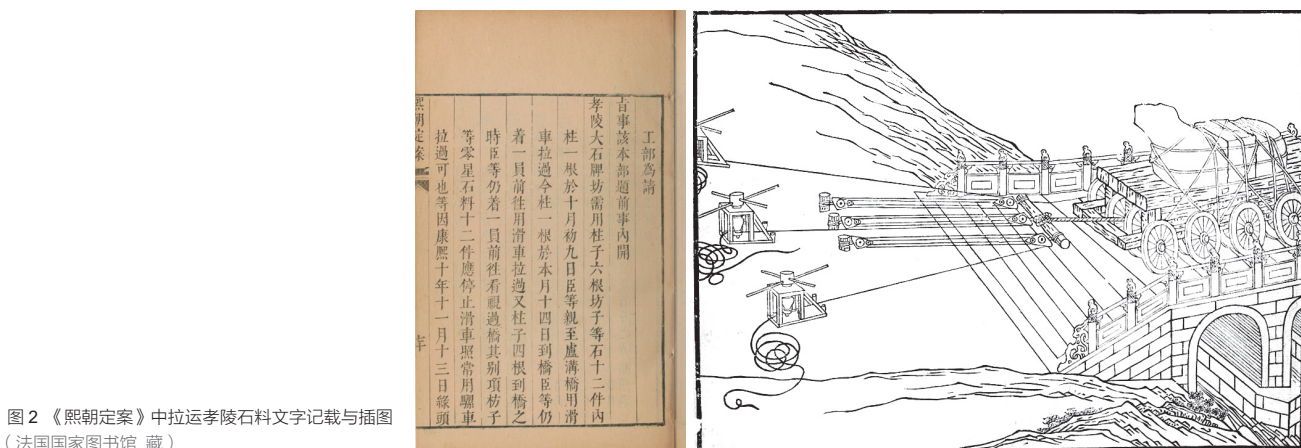 工部為請
旨事該本部題前事內開
孝陵大石牌坊需用柱子六根坊子等石十二件內
柱一根於十月初九日臣等親至盧溝橋用滑
車拉過今柱一根於本月十四日到橋臣等仍
着一員前往用滑車拉過又柱子四根到橋之
時臣等仍着一員前往看視過橋其別項枋子
等零星石料十二件應停止滑車照常用驟車
拉過可也等因康熙十年十一月十三日綠頭
熙朝定案
图2 《熙朝定案》中拉运孝陵石料文字记载与插图
（法国国家图书馆 藏）